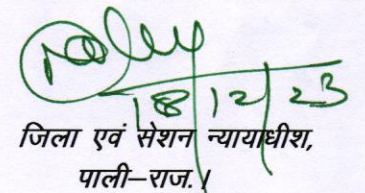 18/12/23
जिला एवं सेशन न्यायाधीश,
पाली–राज.।